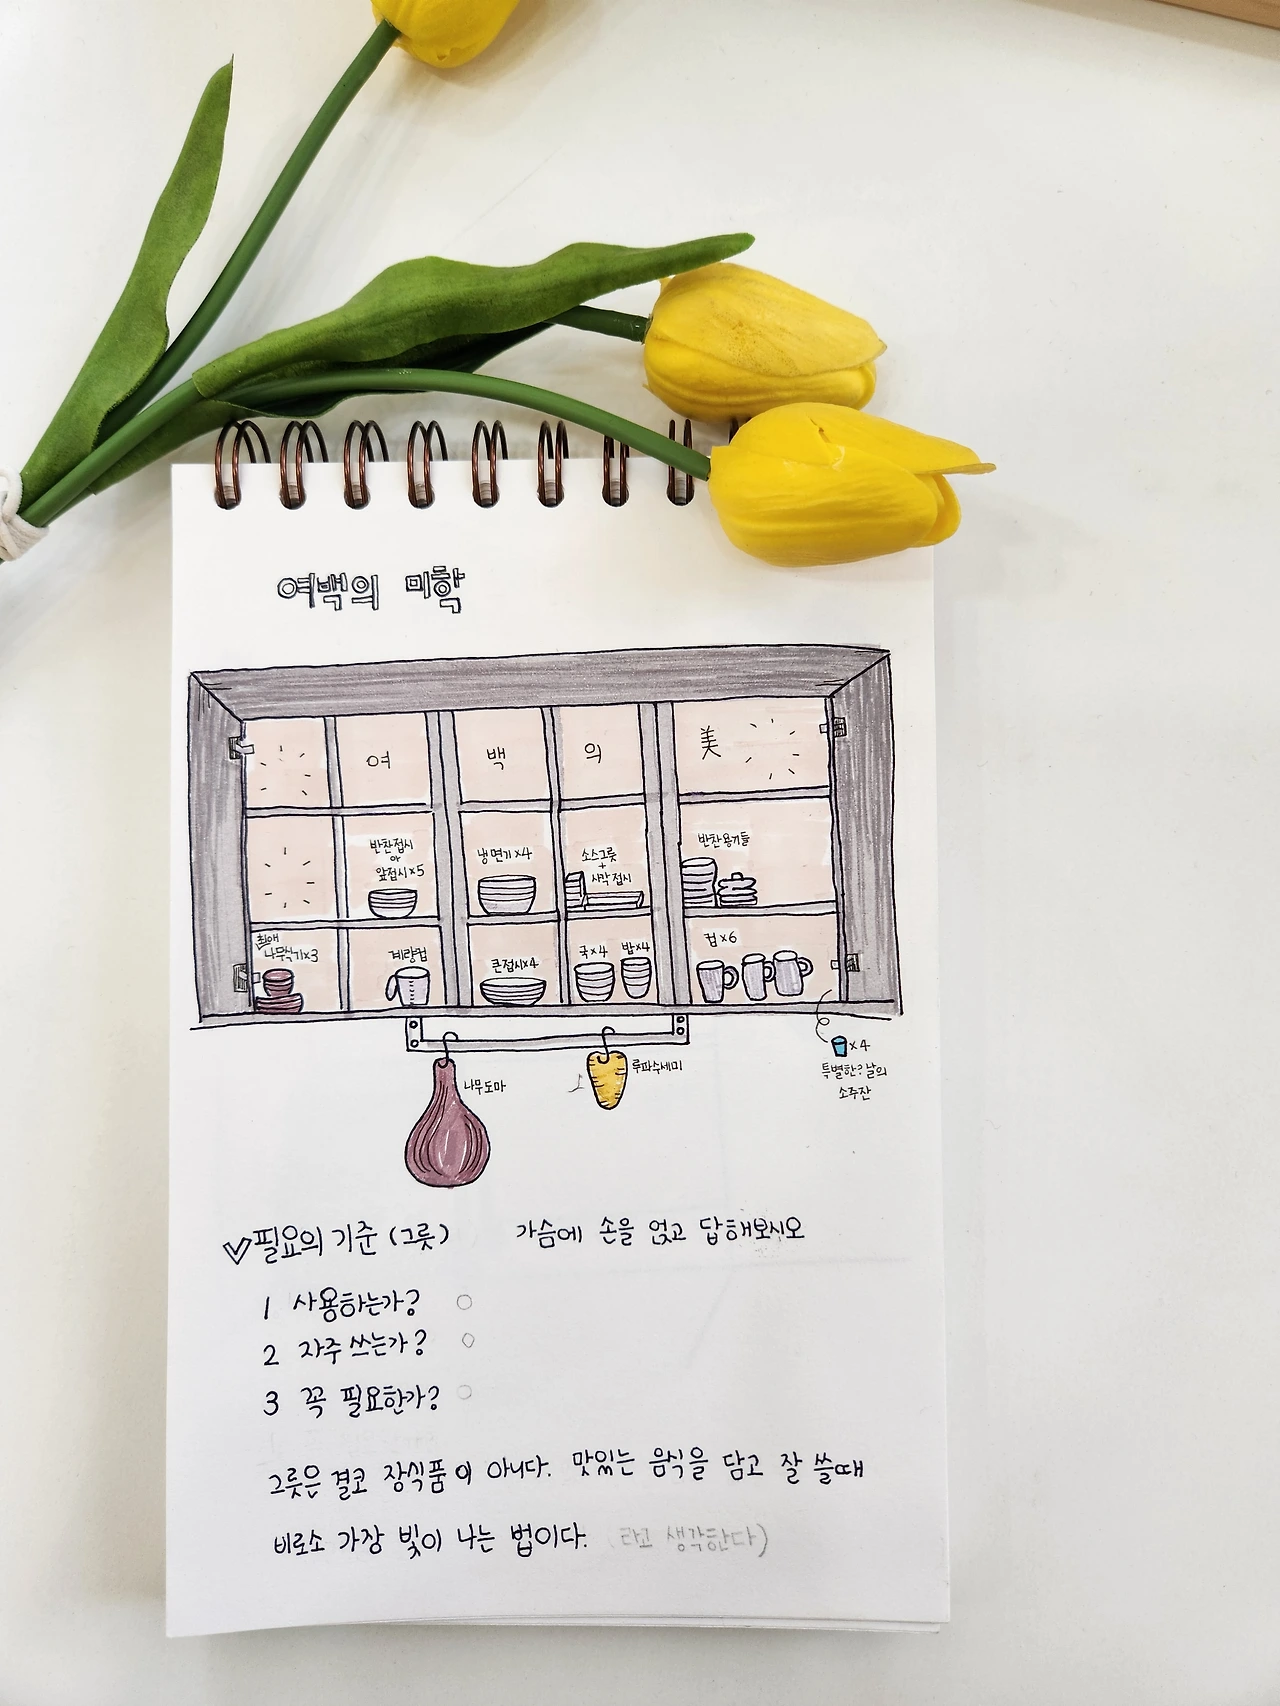 여백의 미학
여 백 의 美
반찬접시
or
앞접시×5
냉면기×4
소스그릇
+
사각접시
반찬용기들
최애
나무식기×3
계량컵
큰접시×4
국×4 밥×4
컵×6
나무도마
루파수세미
×4
특별한? 날의
소주잔
필요의 기준 (그릇) 가슴에 손을 얹고 답해보시오
1 사용하는가? ○
2 자주 쓰는가? ○
3 꼭 필요한가? ○
그릇은 결코 장식품이 아니다. 맛있는 음식을 담고 잘 쓸때
비로소 가장 빛이 나는 법이다. (라고 생각한다)